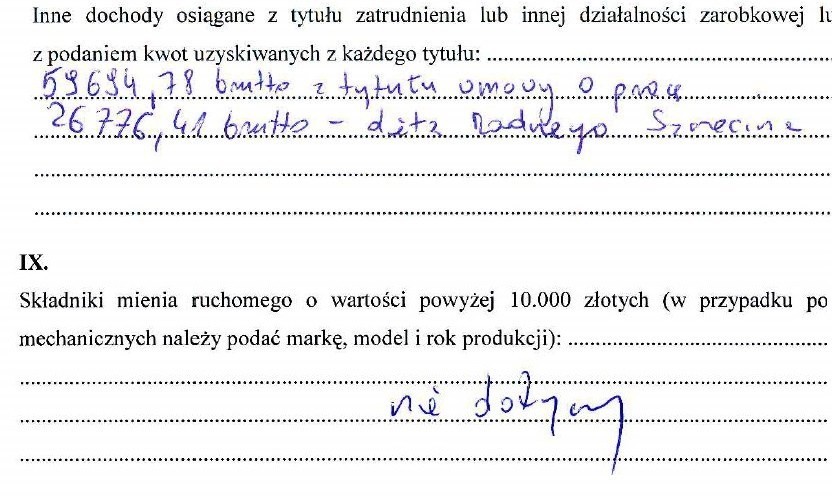 Inne dochody osiągane z tytułu zatrudnienia lub innej działalności zarobkowej lu
z podaniem kwot uzyskiwanych z każdego tytułu: ..........
59694,78 brutto z tytułu umowy o pracę
26776,41 brutto - dieta Radnego Szczecina
IX.
Składniki mienia ruchomego o wartości powyżej 10.000 złotych (w przypadku po
mechanicznych należy podać markę, model i rok produkcji): ..........
nie dotyczy